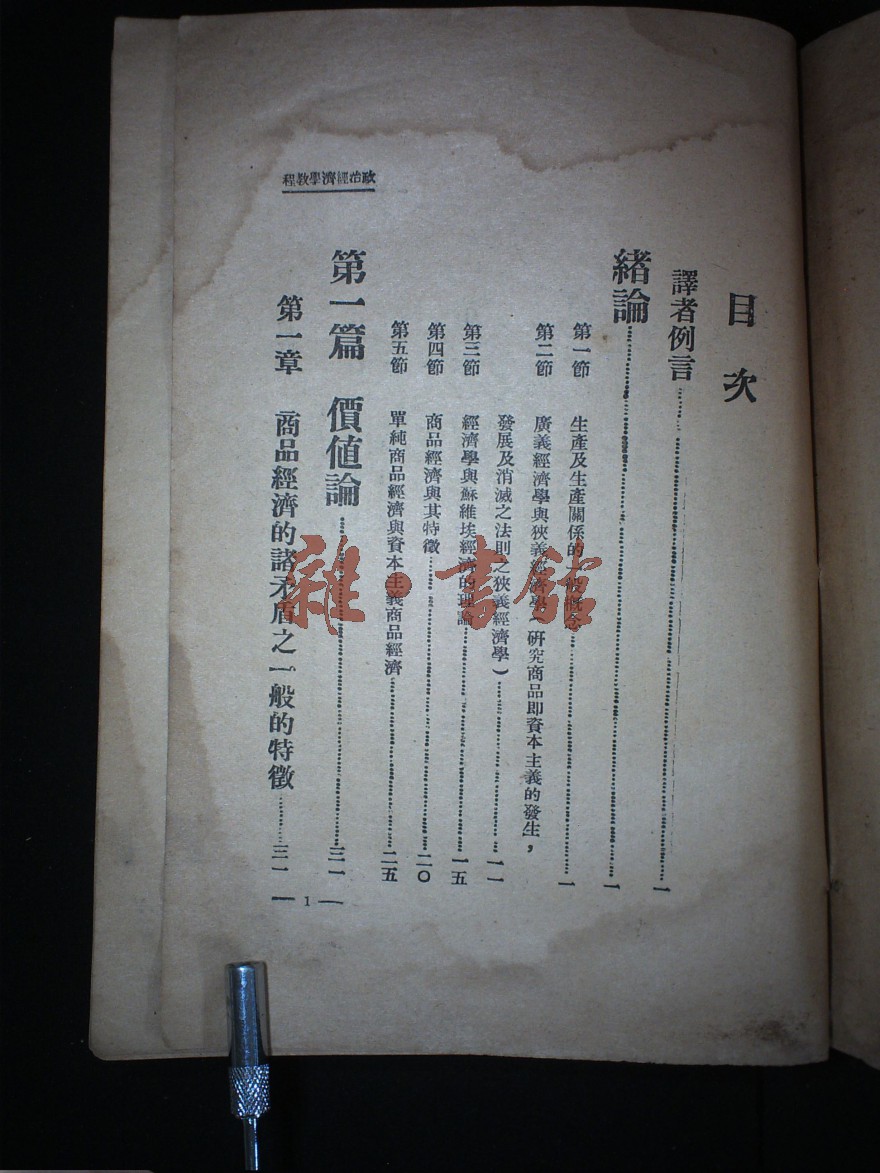 政治經濟學教程
目次
譯者例言……一
緒論……一
第一節 生產及生產關係的一般概念……一
第二節 廣義經濟學與狹義經濟學（研究商品即資本主義的發生，
發展及消滅之法則之狹義經濟學）……一一
第三節 經濟學與蘇維埃經濟的理論……一五
第四節 商品經濟與其特徵……二〇
第五節 單純商品經濟與資本主義商品經濟……二五
第一篇 價值論……三一
第一章 商品經濟的諸矛盾之一般的特徵……三一
— 1 —
雜·書館